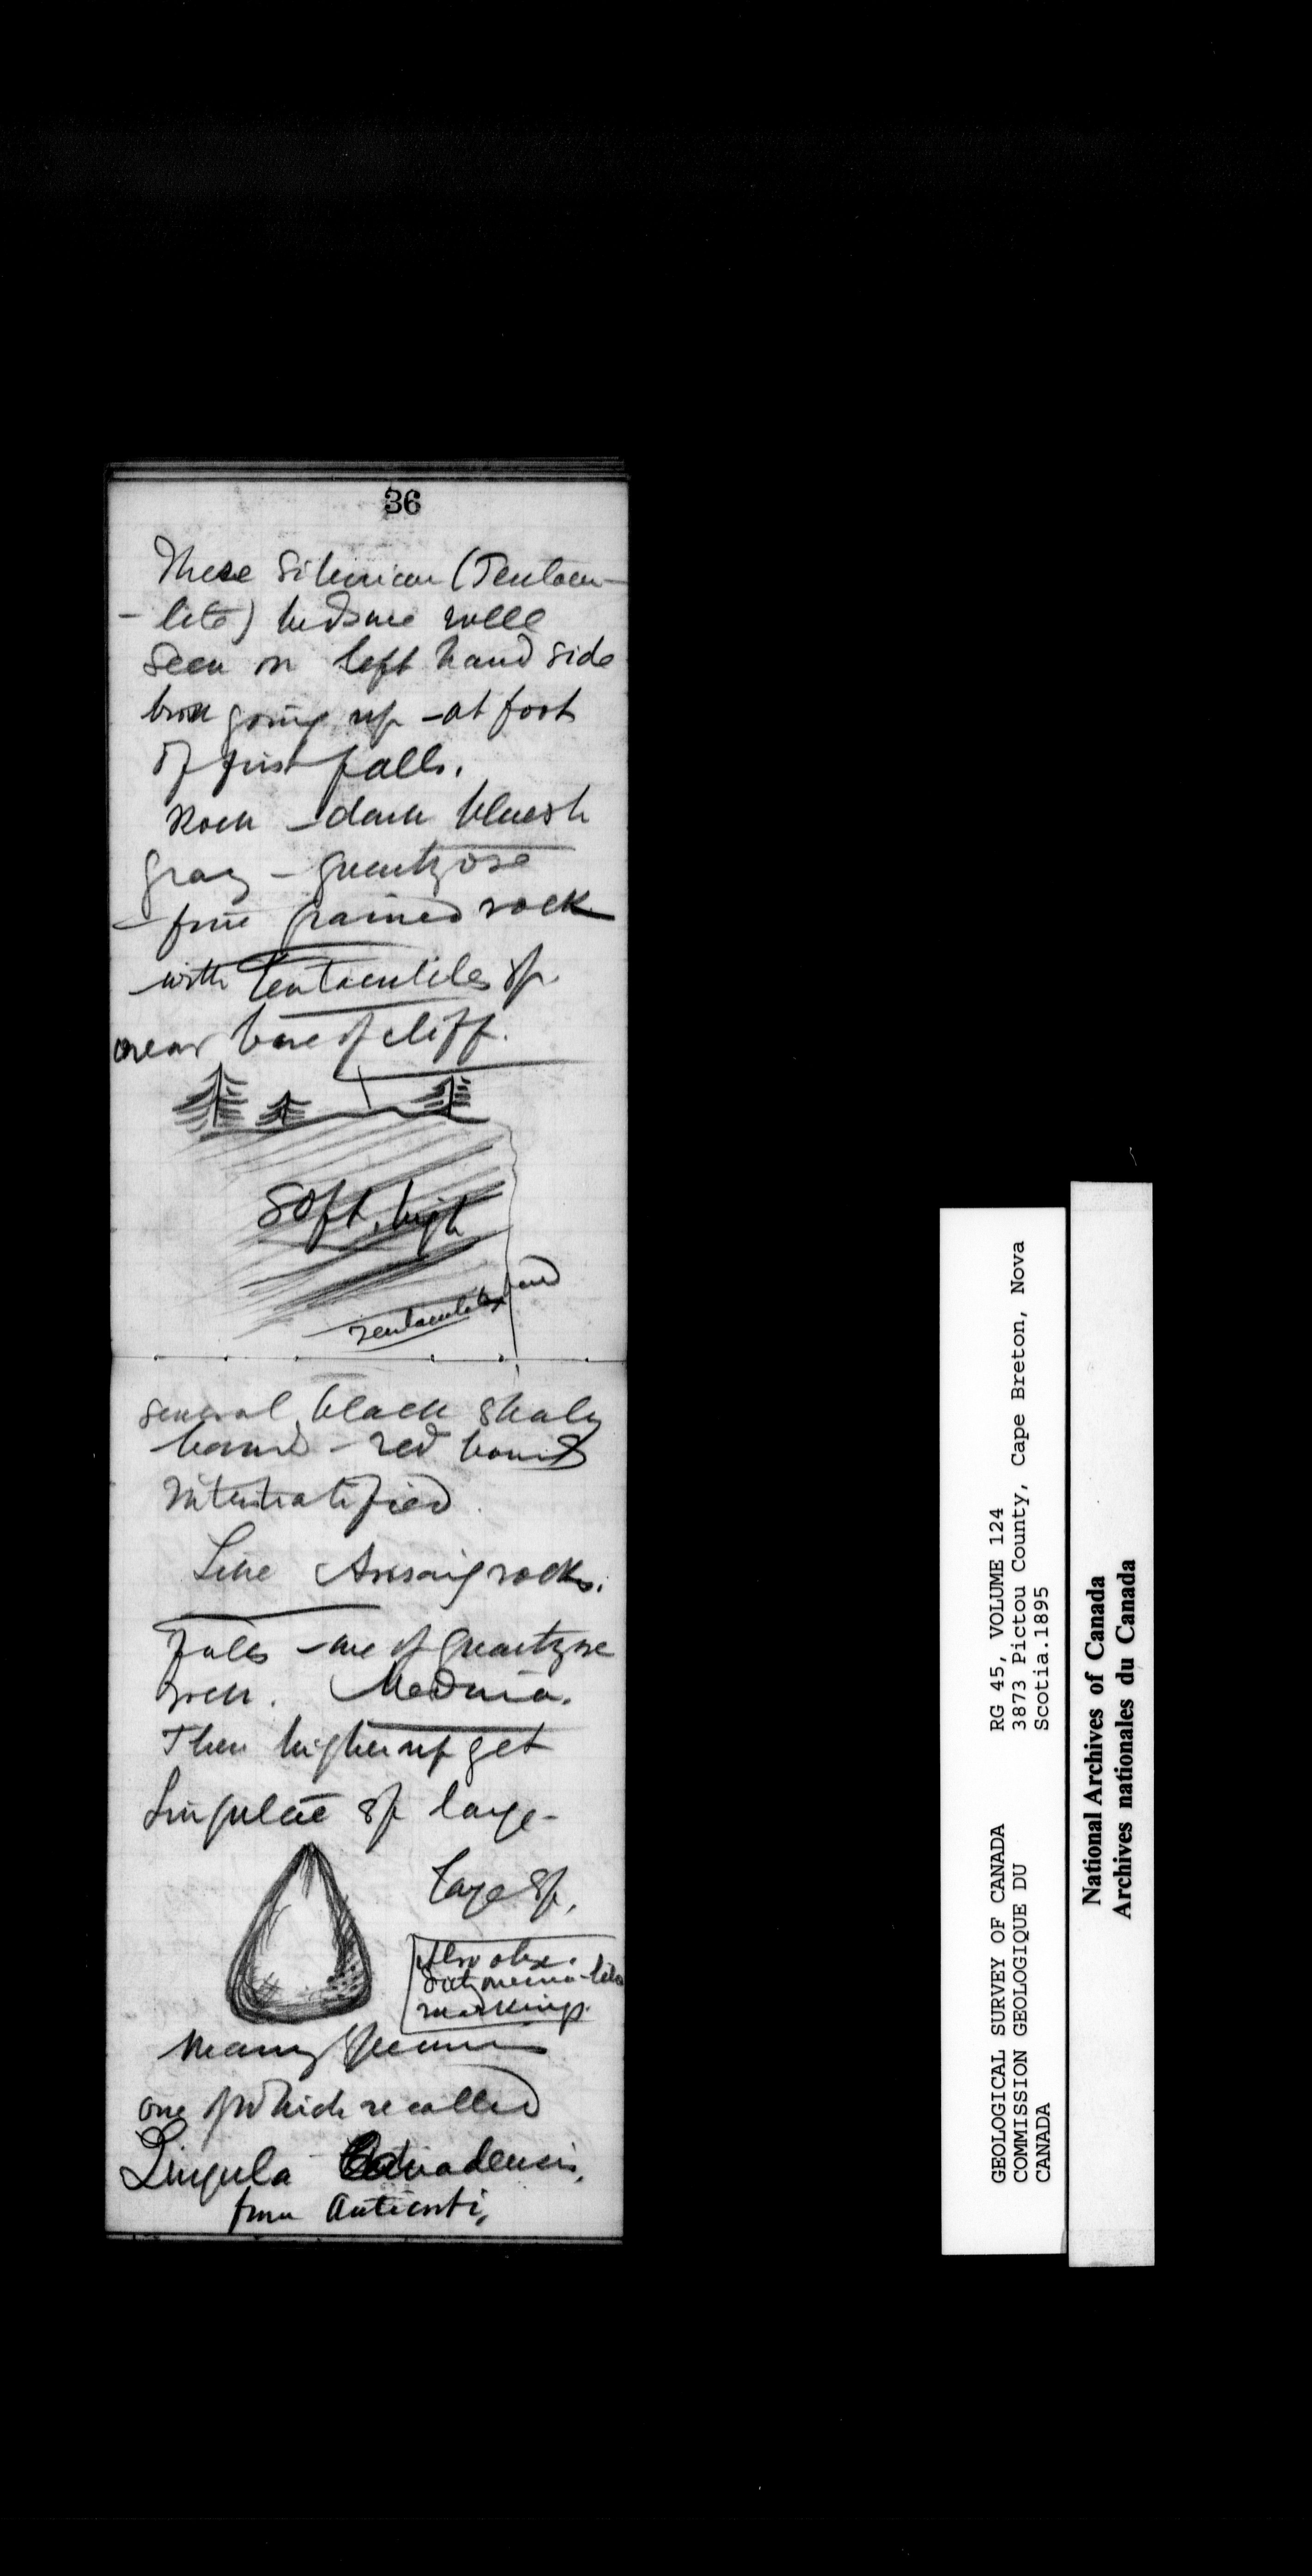 36
These Silurian (Tentacu-
- lite) beds are well
seen on left hand side
going up - at foot
of first falls.
Rock - dark bluesh
gray - quartzose
- fine grained rock
with Tentaculites sp.
near base of cliff.
Soft, high
Tentaculites band
several black shaly
bands - red bands
interstratified.
Like Arisaig rocks.
Falls - are of quartzose
rock. Medina.
Then higher up get
Lingulae sp large -
Large sp.
Also obs.
markings.
Many specimens
one of which recalled
Lingula Canadensis,
from Anticosti,
GEOLOGICAL SURVEY OF CANADA
COMMISSION GEOLOGIQUE DU
CANADA
RG 45, VOLUME 124
3873 Pictou County, Cape Breton, Nova
Scotia.1895
National Archives of Canada
Archives nationales du Canada